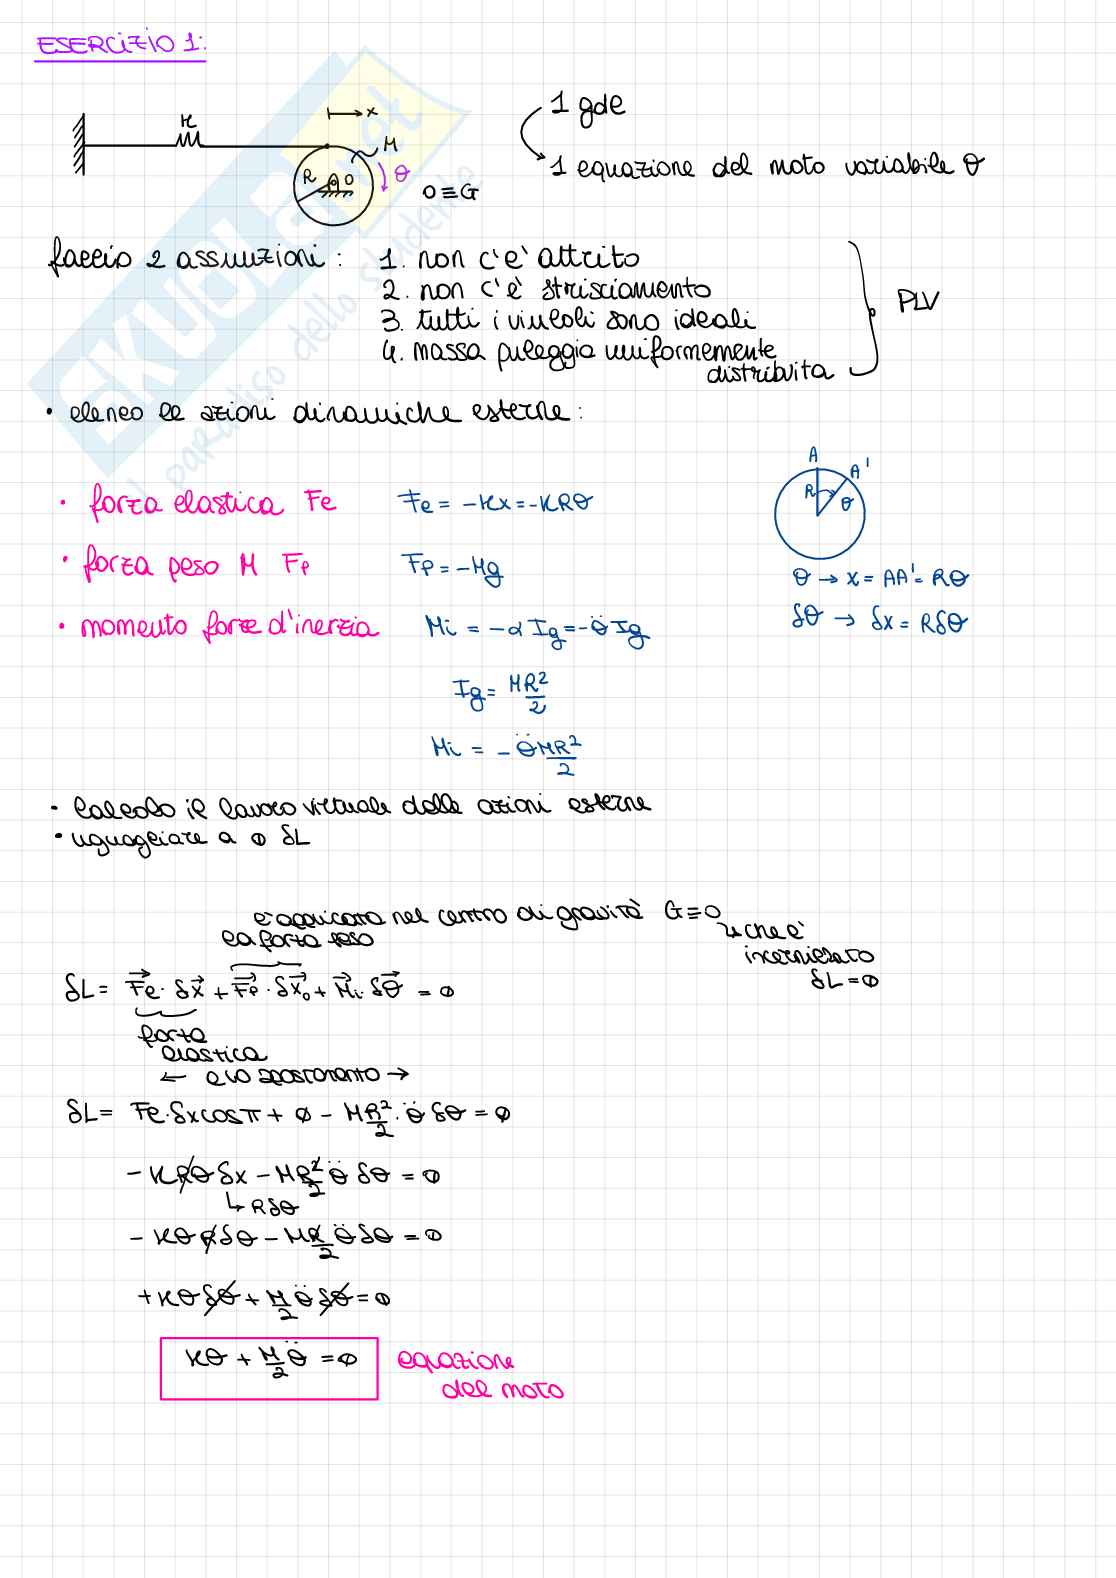 ESERCIZIO 1:
K
x
M
R
O
θ
O≡G
1 gde
1 equazione del moto variabile θ
faccio 2 assunzioni: 1. non c'e' attrito
2. non c'è strisciamento
3. tutti i vincoli sono ideali
4. massa puleggia uniformemente
distribuita
PLV
• elenco le azioni dinamiche esterne:
• forza elastica Fe Fe = -Kx = -KRθ
• forza peso M Fp Fp = -Mg
• momento forze d'inerzia Mi = -α Ig = -θ̈ Ig
Ig = MR²/2
Mi = -θ̈ MR²/2
A
A'
R
θ
θ → x = AA' = Rθ
δθ → δx = Rδθ
• calcolo il lavoro virtuale delle azioni esterne
• uguagliare a 0 δL
è applicata nel centro di gravità G≡O
la forza peso
che è
incernierato
δL = 0
δL = Fe · δx + Fp · δx₀ + Mi · δθ = 0
forza
elastica
← e lo spostamento →
δL = Fe · δx cosπ + 0 - MR²/2 · θ̈ δθ = 0
- KRθ δx - MR²/2 θ̈ δθ = 0
↳ Rδθ
- Kθ R δθ - MR/2 θ̈ δθ = 0
+ Kθ δθ + M/2 θ̈ δθ = 0
Kθ + M/2 θ̈ = 0 equazione
del moto
SKUOLA.net
il paradiso dello studente